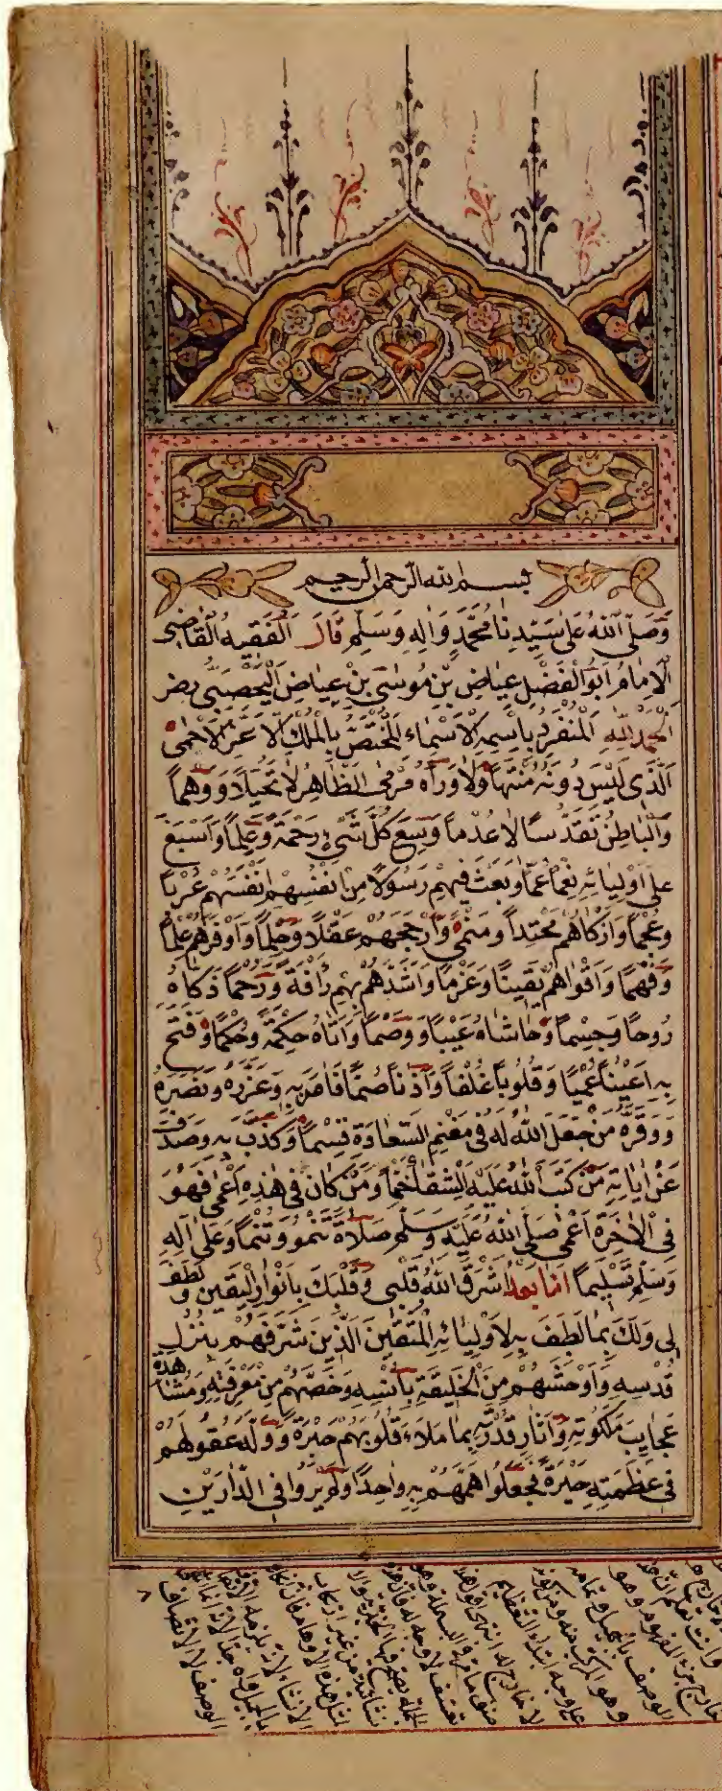 بسم الله الرحمن الرحيم
وَصَلَّى اللّٰهُ عَلٰى سَيِّدِنَا مُحَمَّدٍ وَاٰلِهِ وَسَلِّم قَالَ الْفَقِيهُ الْقَاضِى
الْاِمَامُ اَبُو الْفَضْلِ عِيَاضُ بْنُ مُوسَى بْنِ عِيَاضٍ الْيَحْصَبِىُّ رضر
اَلْحَمْدُ لِلّٰهِ الْمُنْفَرِدِ بِاسْمِهِ الْاَسْمَاءِ الْمُخْتَصِّ بِالْمُلْكِ الْاَعَزِّ الْاَحْمٰى
اَلَّذِى لَيْسَ دُونَهُ مُنْتَهًا وَلَا وَرَاهُ مَرْمٰى الظَّاهِرُ لَا تَخَيُّلًا وَوَهْماً
وَالْبَاطِنُ تَقَدُّساً لَا عُدْماً وَسِعَ كُلَّ شَىْءٍ رَحْمَةً وَعِلْماً وَاَسْبَغَ
عَلٰى اَوْلِيَائِهِ نِعَماً عُمًّا وَبَعَثَ فِيهِمْ رَسُولًا مِنْ اَنْفُسِهِمْ اَنْفَسَهُمْ عُرْباً
وَعُجْماً وَاَزْكَاهُمْ مَحْتِداً وَمَنْمًى وَاَرْجَحَهُمْ عَقْلًا وَحِلْماً وَاَوْفَرَهُمْ عِلْماً
وَفَهْماً وَاَقْوَاهُمْ يَقِينًا وَعَزْماً وَاَشَدَّهُمْ بِهِمْ رَاْفَةً وَرُحْماً زَكَّاهُ
رُوحاً وَجِسْماً وَحَاشَاهُ عَيْباً وَوَصْماً وَاٰتَاهُ حِكْمَةً وَحُكْماً وَفَتَحَ
بِهِ اَعْيُناً عُمْيًا وَقُلُوباً غُلْفاً وَاٰذَناً صُمًّا فَاٰمَنَ بِهِ وَعَزَّرَهُ وَنَصَرَهُ
وَوَقَّرَهُ مَنْ جَعَلَ اللّٰهُ لَهُ فِى مَغْنَمِ السَّعَادَةِ قِسْماً وَكَذَّبَ بِهِ وَصَدَفَ
عَنْ اٰيَاتِهِ مَنْ كَتَبَ اللّٰهُ عَلَيْهِ الشَّقَا حَتْماً وَمَنْ كَانَ فِى هٰذِهِ اَعْمٰى فَهُوَ
فِى الْاٰخِرَةِ اَعْمٰى صَلَّى اللّٰهُ عَلَيْهِ وَسَلَّمَ صَلَاةً تَنْمُو وَتُنْمٰا وَعَلٰى اٰلِهِ
وَسَلِّمْ تَسْلِيماً اَمَّا بَعْدُ اَشْرَقَ اللّٰهُ قَلْبِى وَقَلْبَكَ بِاَنْوَارِ الْيَقِينِ وَلَطَفَ
لِى وَلَكَ بِمَا لَطَفَ بِهِ لِاَوْلِيَائِهِ الْمُتَّقِينَ الَّذِينَ شَرَّفَهُمْ بِنُزُلِ
قُدْسِهِ وَاَوْحَشَهُمْ مِنَ الْخَلِيقَةِ بِاُنْسِهِ وَخَصَّهُمْ مِنْ مَعْرِفَتِهِ وَمُشَاهَدَة
عَجَايِبِ مَلَكُوتِهِ وَاٰثَارِ قُدْرَتِهِ بِمَا مَلَاَ قُلُوبَهُمْ حَبْرَةً وَوَلَّهَ عُقُولَهُمْ
فِى عَظَمَتِهِ حَيْرَةً فَجَعَلُوا هَمَّهُمْ بِهِ وَاحِدًا وَلَمْ يَرَوْا فِى الدَّارَيْنِ